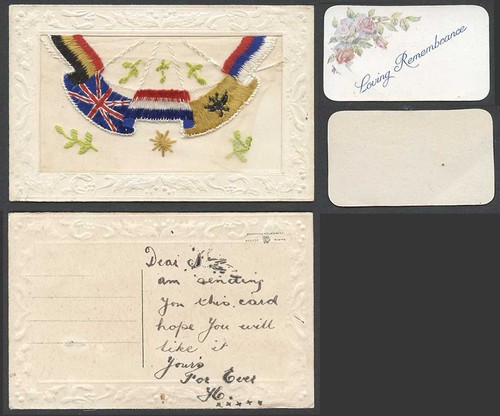 Loving Remembrance
Dear
am sending
you this card
hope you will
like it
Yours
For Ever
H.
x x x x x